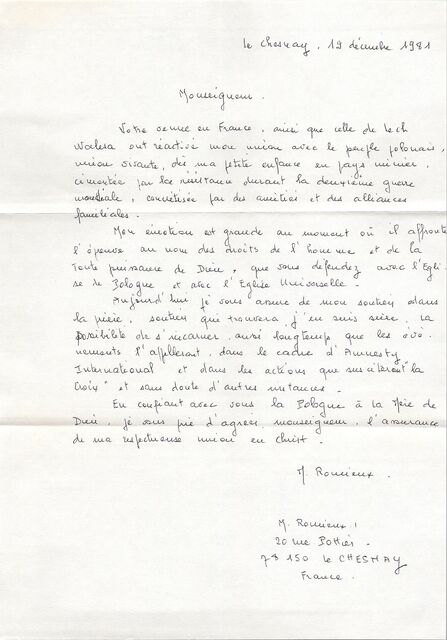 le Chesnay, 19 décembre 1981
Monseigneur.
Votre venue en France, ainsi que celle de Lech
Walesa ont réactivé mon union avec le peuple polonais,
union vivante, dès ma petite enfance en pays minier,
cimentée par la résistance durant la deuxième guerre
mondiale, concrétisée par des amitiés et des alliances
familiales.
Mon émotion est grande au moment où il affronte
l'épreuve au nom des droits de l'homme et de la
Toute puissance de Dieu, que vous défendez avec l'Egli
se de Pologne et avec l'Eglise Universelle.
Aujourd'hui je vous assure de mon soutien dans
la prière, soutien qui trouvera, j'en suis sûre, la
possibilité de s'incarner, aussi longtemps que les évè
nements l'appelleront, dans le cadre d'Amnesty
International et dans les actions que susciterent "la
Croix" et sans doute d'autres instances.
En confiant avec vous la Pologne à la Mère de
Dieu, je vous prie d'agréer monseigneur, l'assurance
de ma respectueuse union en Christ.
M. Romieux.
M. Romieux
20 rue Pottier
78 150 le CHESNAY
France.